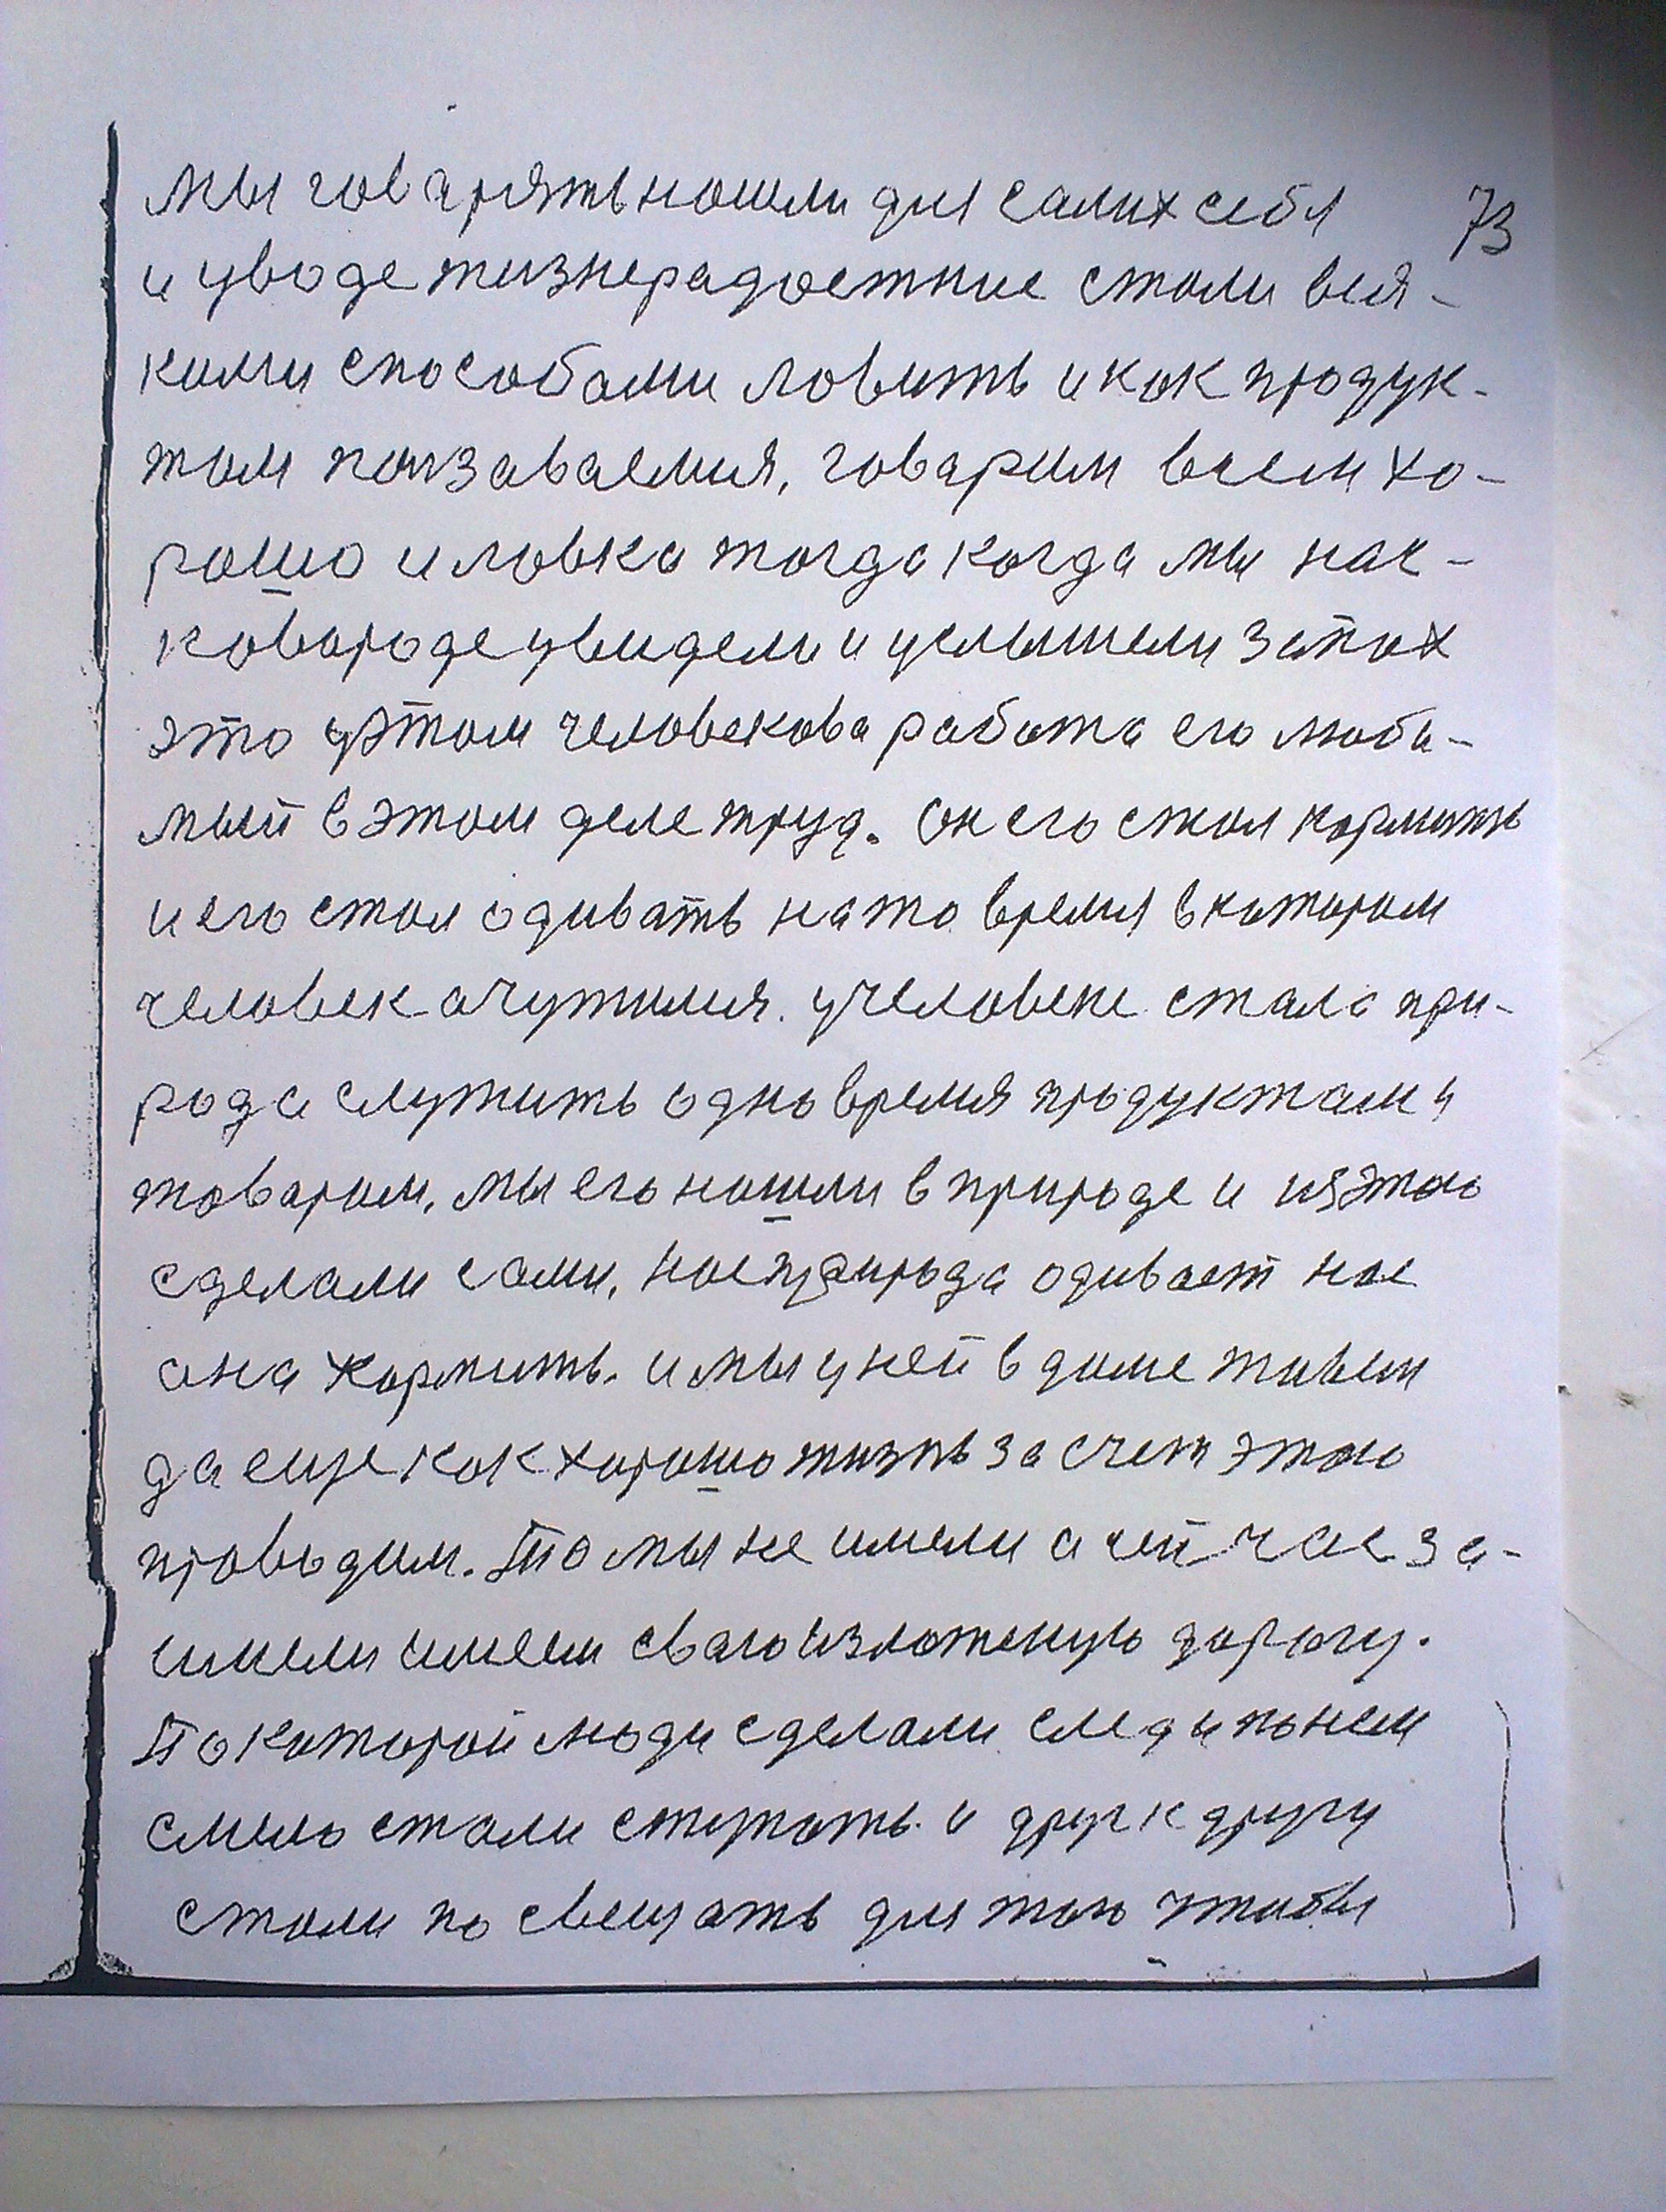 мы говарять ношли для самих себя
73
и уводе жизнерадостние стали вся-
кими способами ловить и как продук-
том ползаваемия, говарим всем хо-
рошо и ловка тогда когда мы нас-
ковороде увидели и услышели запах
это уэтом человекова работа его люби-
мый в этом деле труд. Он его стал кормить
и его стал одивать на то время в котором
человек очутился. у человеке стала при-
рода служить одно время продуктам и
товаром, мы его ношли в природе и изэтого
сделали сами, нас природа одивает нас
она кормить. и мы у ней в доме живем
да еще как хорошо жизнь за счет этого
проводим. То мы не имели а сей час за-
имели имеем сваю изложеную дорогу.
По которой люди сделали следи по нем
смело стали ступать. и друг к другу
стали по свещать для того чтобы